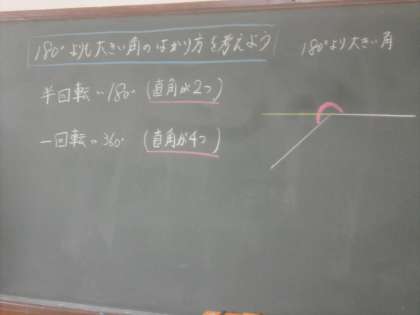 180°より大きい角のはかり方を考えよう
180°より大きい角
半回転…180°(直角が2つ)
一回転…360°(直角が4つ)